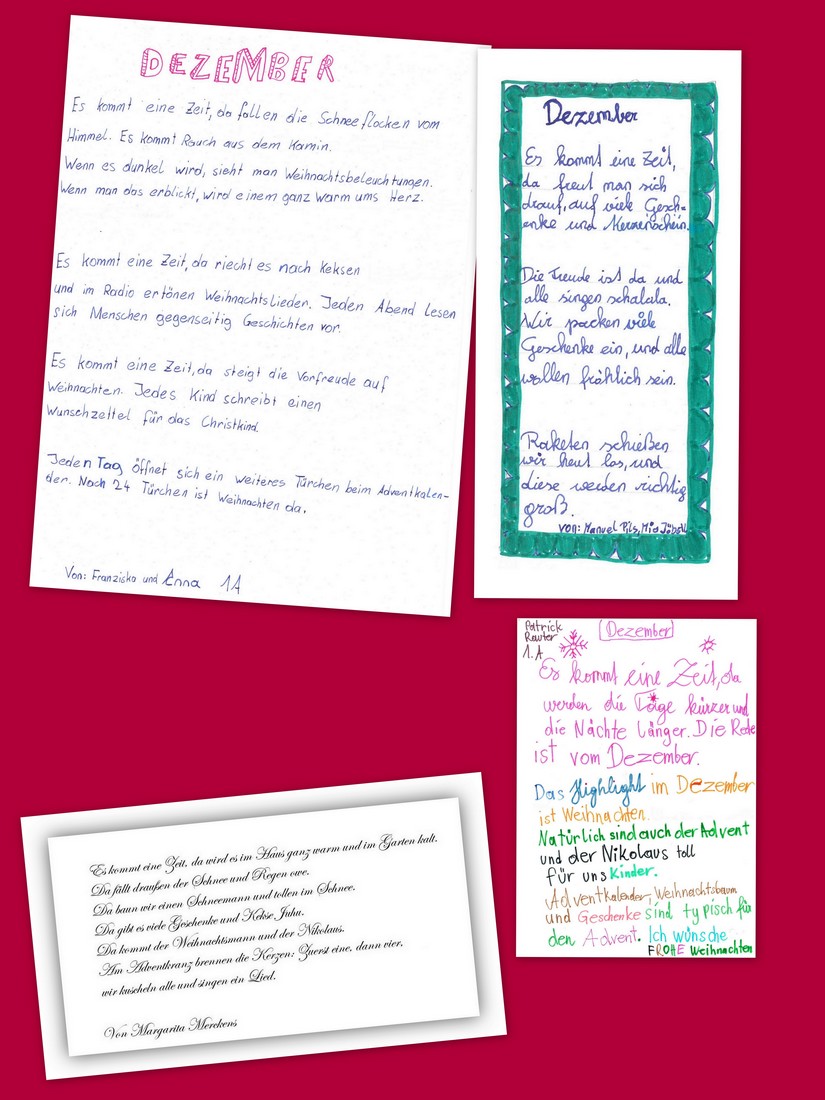 DEZEMBER
Es kommt eine Zeit, da fallen die Schneeflocken vom
Himmel. Es kommt Rauch aus dem Kamin.
Wenn es dunkel wird, sieht man Weihnachtsbeleuchtungen.
Wenn man das erblickt, wird einem ganz warm ums Herz.
Es kommt eine Zeit, da riecht es nach Keksen
und im Radio ertönen Weihnachtslieder. Jeden Abend lesen
sich Menschen gegenseitig Geschichten vor.
Es kommt eine Zeit, da steigt die Vorfreude auf
Weihnachten. Jedes Kind schreibt einen
Wunschzettel für das Christkind.
Jeden Tag öffnet sich ein weiteres Türchen beim Adventkalen-
der. Nach 24 Türchen ist Weihnachten da.
Von: Franziska und Anna 1A
Dezember
Es kommt eine Zeit,
da freut man sich
drauf, auf viele Gesch-
enke und Kerzenschein.
Die Freude ist da und
alle singen schalala.
Wir packen viele
Geschenke ein, und alle
wollen fröhlich sein.
Raketen schießen
wir heut los, und
diese werden richtig
groß.
von: Manuel Pils, Mia Jöbstl
Patrick
Rauter
1.A
Dezember
Es kommt eine Zeit, da
werden die Tage kürzer und
die Nächte länger. Die Rede
ist vom Dezember.
Das Highlight im Dezember
ist Weihnachten.
Natürlich sind auch der Advent
und der Nikolaus toll
für uns Kinder.
Adventkalender, Weihnachtsbaum
und Geschenke sind typisch für
den Advent. Ich wünsche
FROHE Weihnachten
Es kommt eine Zeit, da wird es im Haus ganz warm und im Garten kalt.
Da fällt draußen der Schnee und Regen owe.
Da baun wir einen Schneemann und tollen im Schnee.
Da gibt es viele Geschenke und Kekse Juhu.
Da kommt der Weihnachtsmann und der Nikolaus.
Am Adventkranz brennen die Kerzen: Zuerst eine, dann vier,
wir kuscheln alle und singen ein Lied.
Von Margarita Merckens